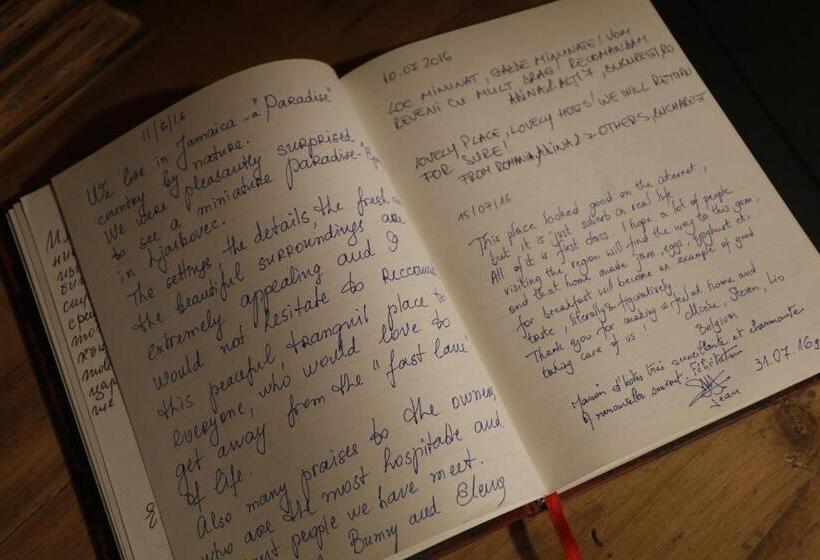 11/6/16
We live in Jamaica - a "Paradise"
country by nature.
We were pleasantly surprised
to see a miniature Paradise-
in Ljaskovec.
The settings, the details, the fresh
the beautiful surroundings are
extremely appealing and I
would not hesitate to
this peaceful, tranquil place to
everyone, who would love to
get away from the "fast lane"
of life.
Also many praises to the owners
who are the most hospitable and
people we have meet.
Bunny and
10.07.2016
LOC MINUNAT, GAZDE MINUNATE! VOM
REVENI CU MULT DRAG! RECOMANDAM
ALINA & ALȚI 7, BUCUREȘTI, RO
LOVELY PLACE, LOVELY HOSTS! WE WILL RETURN
FOR SURE!
FROM ROMANIA, ALINA & 7 OTHERS, BUCHAREST
15/07/16
This place looked good on the internet,
but it is just superb in real life.
All of it is first class. I hope a lot of people
visiting the region will find the way to this gem,
and that home made jam, eggs, yoghurt etc.
for breakfast will become an example of good
taste, literally & figuratively.
Thank you for making us feel at home and
taking care of us!
Steven,
Belgium
Maison d'hotes très accueillante et charmante
A renouveler souvent. Félicitations
31.07.16
Jean